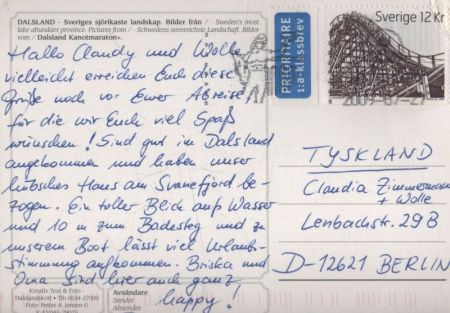 DALSLAND - Sveriges sjörikaste landskap. Bilder från / - Sweden's most
lake abundant province. Pictures from / - Schwedens seenreichste Landschaft. Bilder
vom / Dalsland Kanotmaraton+.
Hallo Claudy und Wolle
vielleicht erreichen Euch diese
Grüße noch vor Eurer Abreise
für die wir Euch viel Spaß
wünschen! Sind gut in Dalsland
angekommen und haben unser
hübsches Haus am Svanefjord be-
zogen. Ein toller Blick aufs Wasser
und 10 m zum Badesteg und zu
unserem Boot lässt viel Urlaubs-
stimmung aufkommen. Briska und
Oma sind hier auch ganz
happy!
Kreativ Text & Foto
Dalslandskort • Tfn 0534-27000
Foto: Petter A. Jensen G
Avsändare
Sender
Absender
PRIORITAIRE
1:a-klassbrev
Sverige 12 Kr
TYSKLAND
Claudia Zimmermann
+ Wolle
Lenbachstr. 29B
D-12621 BERLIN